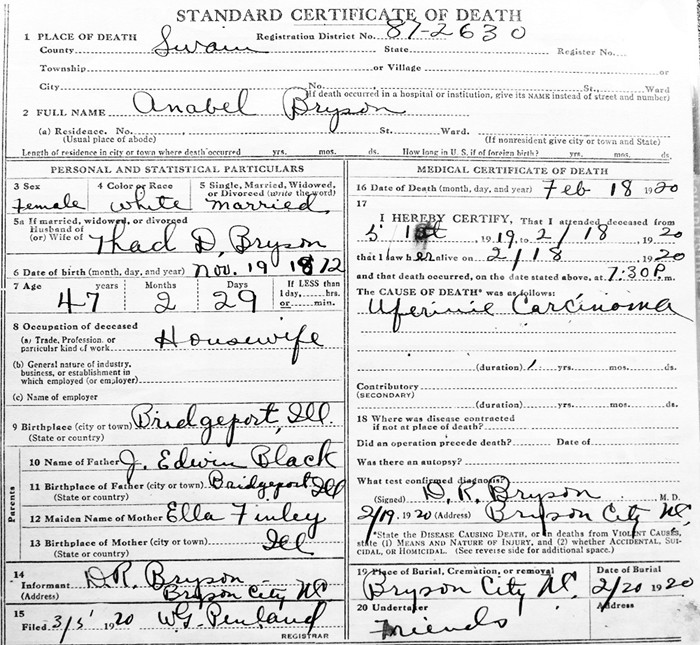 STANDARD CERTIFICATE OF DEATH
1 PLACE OF DEATH Registration District No. 87-2630
County Swain State Register No.
Township or Village or
City No. St., Ward
(If death occurred in a hospital or institution, give its NAME instead of street and number)
2 FULL NAME Anabel Bryson
(a) Residence. No. St. Ward.
(Usual place of abode) (If nonresident give city or town and State)
Length of residence in city or town where death occurred yrs. mos. ds. How long in U. S. if of foreign birth? yrs. mos. ds.
PERSONAL AND STATISTICAL PARTICULARS
3 Sex 4 Color or Race 5 Single, Married, Widowed,
or Divorced (write the word)
Female White Married
5a If married, widowed, or divorced
Husband of
(or) Wife of Thad D. Bryson
6 Date of birth (month, day, and year) Nov. 19 1872
7 Age years Months Days If LESS than
1 day, hrs.
or min.
47 2 29
8 Occupation of deceased
(a) Trade, Profession, or
particular kind of work Housewife
(b) General nature of industry,
business, or establishment in
which employed (or employer)
(c) Name of employer
9 Birthplace (city or town) Bridgeport, Ill.
(State or country)
Parents
10 Name of Father J. Edwin Black
11 Birthplace of Father (city or town) Bridgeport Ill
(State or country)
12 Maiden Name of Mother Ella Finley
13 Birthplace of Mother (city or town)
(State or country) Ill
14
Informant D.R. Bryson
(Address) Bryson City NC
15
Filed 3/5 1920 W.G. Penland
REGISTRAR
MEDICAL CERTIFICATE OF DEATH
16 Date of Death (month, day, and year) Feb 18 1920
17
I HEREBY CERTIFY, That I attended deceased from
1919 to 2/18 1920
that I saw her alive on 2/18 1920
and that death occurred, on the date stated above, at 7:30 P.m.
The CAUSE OF DEATH* was as follows:
Carcinoma
(duration) 1 yrs. mos. ds.
Contributory
(SECONDARY)
(duration) yrs. mos. ds.
18 Where was disease contracted
if not at place of death?
Did an operation precede death? Date of
Was there an autopsy?
What test confirmed diagnosis?
(Signed) D. R. Bryson M. D.
2/19 1920 (Address) Bryson City NC
*State the DISEASE CAUSING DEATH, or in deaths from VIOLENT CAUSES,
state (1) MEANS AND NATURE OF INJURY, and (2) whether ACCIDENTAL, SUI-
CIDAL, or HOMICIDAL. (See reverse side for additional space.)
19 Place of Burial, Cremation, or removal Date of Burial
Bryson City NC. 2/20 1920
20 Undertaker Address
Friends